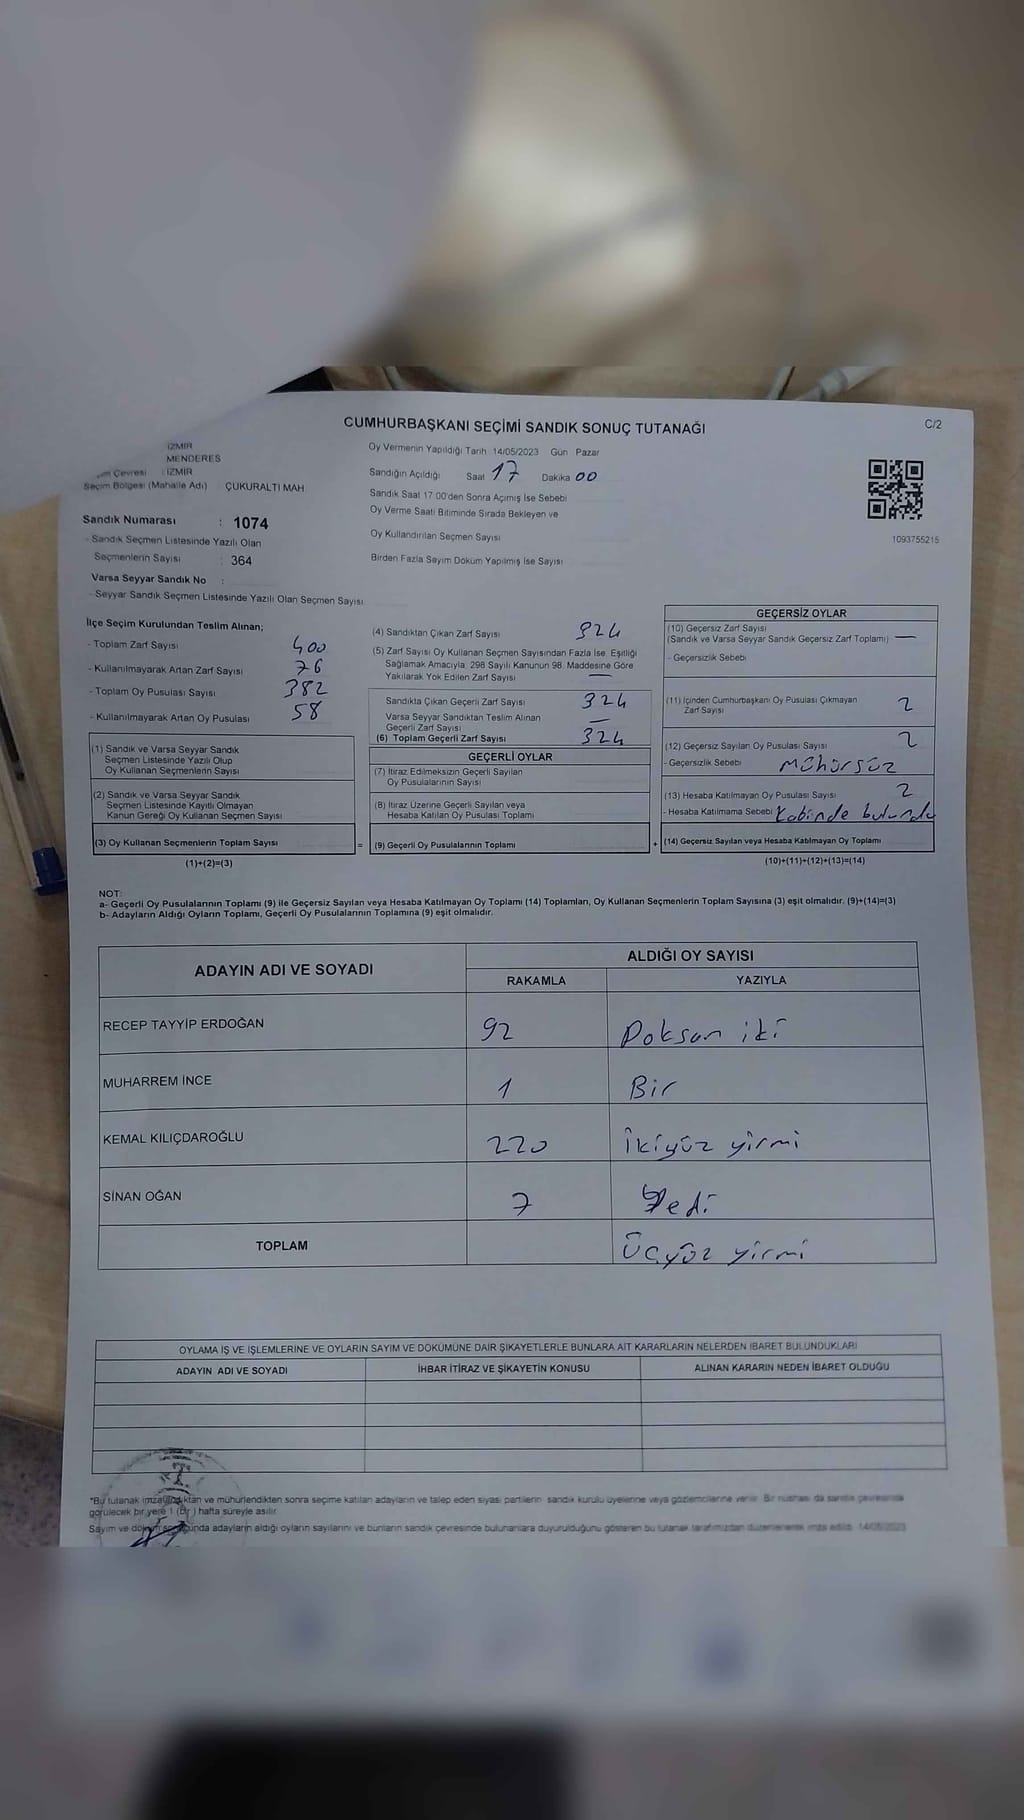 CUMHURBAŞKANI SEÇİMİ SANDIK SONUÇ TUTANAĞI
C/2
İZMİR
MENDERES
Çevresi : İZMİR
Seçim Bölgesi (Mahalle Adı) ÇUKURALTI MAH
Oy Vermenin Yapıldığı Tarih 14/05/2023 Gün Pazar
Sandığın Açıldığı Saat 17 Dakika 00
Sandık Saat 17:00'den Sonra Açımış İse Sebebi
Oy Verme Saati Bitiminde Sırada Bekleyen ve
Oy Kullandırılan Seçmen Sayısı
Birden Fazla Sayım Döküm Yapılmış İse Sayısı
1093755215
Sandık Numarası : 1074
- Sandık Seçmen Listesinde Yazılı Olan
Seçmenlerin Sayısı : 364
Varsa Seyyar Sandık No :
- Seyyar Sandık Seçmen Listesinde Yazılı Olan Seçmen Sayısı
İlçe Seçim Kurulundan Teslim Alınan;
- Toplam Zarf Sayısı 400
- Kullanılmayarak Artan Zarf Sayısı 76
- Toplam Oy Pusulası Sayısı 382
- Kullanılmayarak Artan Oy Pusulası 58
(1) Sandık ve Varsa Seyyar Sandık
Seçmen Listesinde Yazılı Olup
Oy Kullanan Seçmenlerin Sayısı
(2) Sandık ve Varsa Seyyar Sandık
Seçmen Listesinde Kayıtlı Olmayan
Kanun Gereği Oy Kullanan Seçmen Sayısı
(3) Oy Kullanan Seçmenlerin Toplam Sayısı
(1)+(2)=(3)
(4) Sandıktan Çıkan Zarf Sayısı 324
(5) Zarf Sayısı Oy Kullanan Seçmen Sayısından Fazla İse, Eşitliği
Sağlamak Amacıyla, 298 Sayılı Kanunun 98. Maddesine Göre
Yakılarak Yok Edilen Zarf Sayısı —
Sandıkta Çıkan Geçerli Zarf Sayısı 324
Varsa Seyyar Sandıktan Teslim Alınan
Geçerli Zarf Sayısı —
(6) Toplam Geçerli Zarf Sayısı 324
GEÇERLİ OYLAR
(7) İtiraz Edilmeksizin Geçerli Sayılan
Oy Pusulalarının Sayısı
(8) İtiraz Üzerine Geçerli Sayılan veya
Hesaba Katılan Oy Pusulası Toplamı
= (9) Geçerli Oy Pusulalarının Toplamı
GEÇERSİZ OYLAR
(10) Geçersiz Zarf Sayısı
(Sandık ve Varsa Seyyar Sandık Geçersiz Zarf Toplamı) —
- Geçersizlik Sebebi
(11) İçinden Cumhurbaşkanı Oy Pusulası Çıkmayan
Zarf Sayısı 2
(12) Geçersiz Sayılan Oy Pusulası Sayısı 2
- Geçersizlik Sebebi Mühürsüz
(13) Hesaba Katılmayan Oy Pusulası Sayısı 2
- Hesaba Katılmama Sebebi Kabinde bulundu
+ (14) Geçersiz Sayılan veya Hesaba Katılmayan Oy Toplamı
(10)+(11)+(12)+(13)=(14)
NOT:
a- Geçerli Oy Pusulalarının Toplamı (9) ile Geçersiz Sayılan veya Hesaba Katılmayan Oy Toplamı (14) Toplamları, Oy Kullanan Seçmenlerin Toplam Sayısına (3) eşit olmalıdır. (9)+(14)=(3)
b- Adayların Aldığı Oyların Toplamı, Geçerli Oy Pusulalarının Toplamına (9) eşit olmalıdır.
ADAYIN ADI VE SOYADI
ALDIĞI OY SAYISI
RAKAMLA YAZIYLA
RECEP TAYYİP ERDOĞAN 92 Doksan iki
MUHARREM İNCE 1 Bir
KEMAL KILIÇDAROĞLU 220 İkiyüz yirmi
SİNAN OĞAN 7 Yedi
TOPLAM Üçyüz yirmi
OYLAMA İŞ VE İŞLEMLERİNE VE OYLARIN SAYIM VE DÖKÜMÜNE DAİR ŞİKAYETLERLE BUNLARA AİT KARARLARIN NELERDEN İBARET BULUNDUKLARI
ADAYIN ADI VE SOYADI İHBAR İTİRAZ VE ŞİKAYETİN KONUSU ALINAN KARARIN NEDEN İBARET OLDUĞU
*Bu tutanak imzalandıktan ve mühürlendikten sonra seçime katılan adayların ve talep eden siyasi partilerin sandık kurulu üyelerine veya gözlemcilerine verilir. Bir nüshası da sandık çevresinde
görülecek bir yere 1 (Bir) hafta süreyle asılır.
Sayım ve döküm sonucunda adayların aldığı oyların sayılarını ve bunların sandık çevresinde bulunanlara duyurulduğunu gösteren bu tutanak tarafımızdan düzenlenerek imza edildi. 14/05/2023